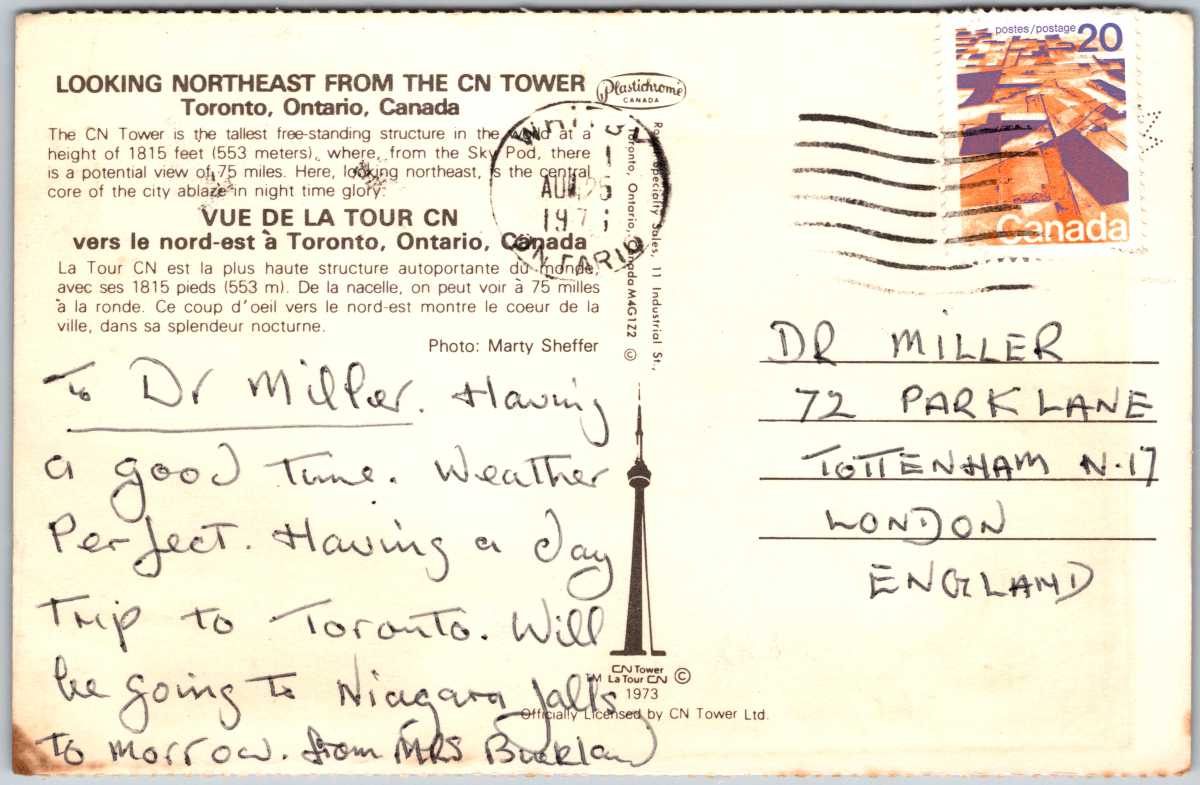 LOOKING NORTHEAST FROM THE CN TOWER
Toronto, Ontario, Canada
The CN Tower is the tallest free-standing structure in the world at a
height of 1815 feet (553 meters), where, from the Sky Pod, there
is a potential view of 75 miles. Here, looking northeast, is the central
core of the city ablaze in night time glory.
VUE DE LA TOUR CN
vers le nord-est à Toronto, Ontario, Canada
La Tour CN est la plus haute structure autoportante du monde,
avec ses 1815 pieds (553 m). De la nacelle, on peut voir à 75 milles
à la ronde. Ce coup d'oeil vers le nord-est montre le coeur de la
ville, dans sa splendeur nocturne.
Photo: Marty Sheffer
To Dr Miller. Having
a good time. Weather
Perfect. Having a day
Trip to Toronto. Will
be going to Niagara falls
to morrow. from MRS Buckland
Plastichrome
CANADA
WHITBY
ONTARIO
Specialty Sales, 11 Industrial St.,
Toronto, Ontario, Canada M4G1Z2 ©
CN Tower
TM La Tour CN ©
1973
Officially Licensed by CN Tower Ltd.
postes/postage 20
Canada
DR MILLER
72 PARK LANE
TOTTENHAM N.17
LONDON
ENGLAND